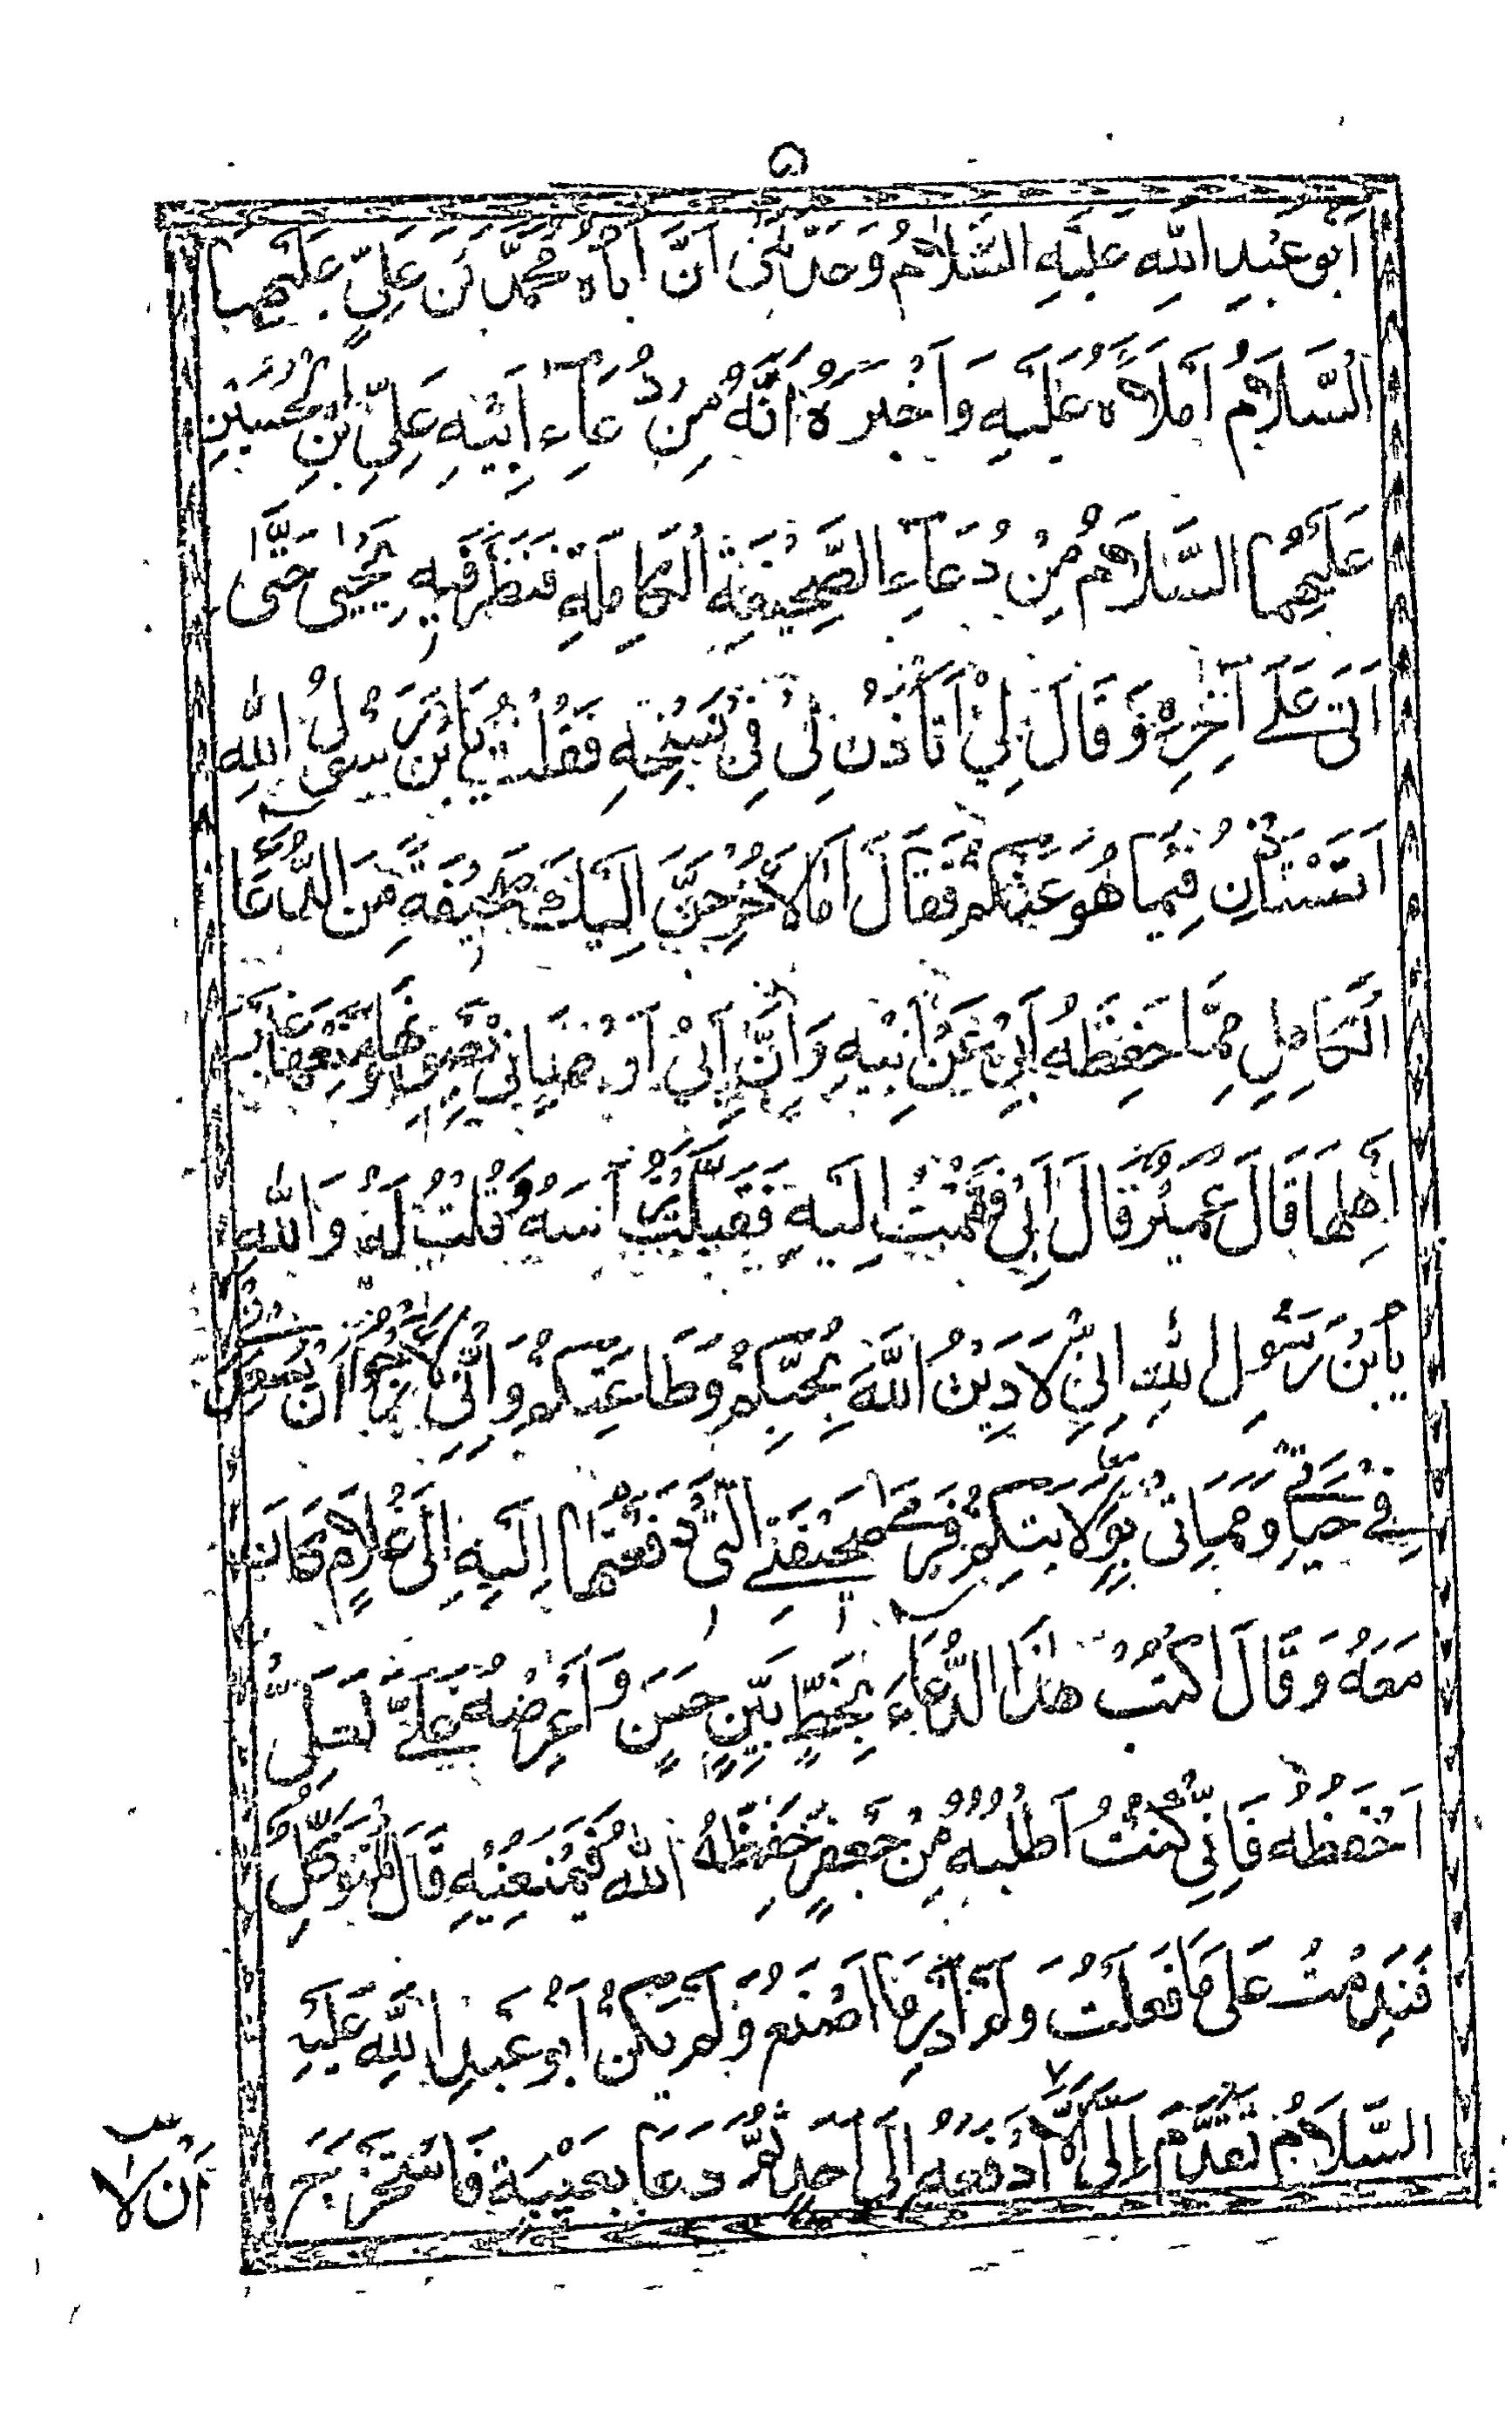 اَبُو عَبْدِ اللّٰهِ عَلَيْهِ السَّلَامُ وَحَدَّثَنِي اَنَّ اَبَاهُ مُحَمَّدَ بْنَ عَلِيٍّ عَلَيْهِمَا
السَّلَامُ اَمْلَاهُ عَلَيْهِ وَاَخْبَرَهُ اَنَّهُ مِنْ دُعَاءِ اَبِيْهِ عَلِيِّ بْنِ الْحُسَيْنِ
عَلَيْهِمَا السَّلَامُ مِنْ دُعَاءِ الصَّحِيْفَةِ الْكَامِلَةِ فَنَظَرَ فِيْهِ يَحْيٰى حَتّٰى
اَتٰى عَلٰى آخِرِهٖ وَقَالَ لِيْ اَتَأْذَنُ لِيْ فِيْ نَسْخِهٖ فَقُلْتُ يَا بْنَ رَسُوْلِ اللّٰهِ
اَتَسْتَأْذِنُ فِيْمَا هُوَ عَنْكُمْ فَقَالَ اَمَا لَاُخْرِجَنَّ اِلَيْكَ صَحِيْفَةً مِنَ الدُّعَاءِ
الْكَامِلِ مِمَّا حَفِظَهُ اَبِيْ عَنْ اَبِيْهِ وَاِنَّ اَبِيْ اَوْصَانِيْ بِصَوْنِهَا وَمَنْعِهَا غَيْرَ
اَهْلِهَا قَالَ عُمَيْرٌ قَالَ اَبِيْ فَقُمْتُ اِلَيْهِ فَقَبَّلْتُ رَأْسَهُ وَقُلْتُ لَهُ وَاللّٰهِ
يَا بْنَ رَسُوْلِ اللّٰهِ اِنِّيْ لَاَدِيْنُ اللّٰهَ بِحُبِّكُمْ وَطَاعَتِكُمْ وَاِنِّيْ لَاَرْجُوْ اَنْ يُسْعِدَنِيْ
فِيْ حَيَاتِيْ وَمَمَاتِيْ بِوَلَايَتِكُمْ فَرَمٰى صَحِيْفَتِيَ الَّتِيْ دَفَعْتُهَا اِلَيْهِ اِلٰى غُلَامٍ كَانَ
مَعَهُ وَقَالَ اكْتُبْ هٰذَا الدُّعَاءَ بِخَطٍّ بَيِّنٍ حَسَنٍ وَاعْرِضْهُ عَلَيَّ لَعَلِّيْ
اَحْفَظُهُ فَاِنِّيْ كُنْتُ اَطْلُبُهُ مِنْ جَعْفَرٍ حَفِظَهُ اللّٰهُ فَيَمْنَعُنِيْهِ قَالَ مُتَوَكِّلٌ
فَنَدِمْتُ عَلٰى مَا فَعَلْتُ وَلَمْ اَدْرِ مَا اَصْنَعُ وَلَمْ يَكُنْ اَبُوْ عَبْدِ اللّٰهِ عَلَيْهِ
السَّلَامُ تَقَدَّمَ اِلَيَّ اَلَّا اَدْفَعَهُ اِلٰى اَحَدٍ ثُمَّ دَعَا بِعَيْبَةٍ فَاسْتَخْرَجَ
اَنْ لَا